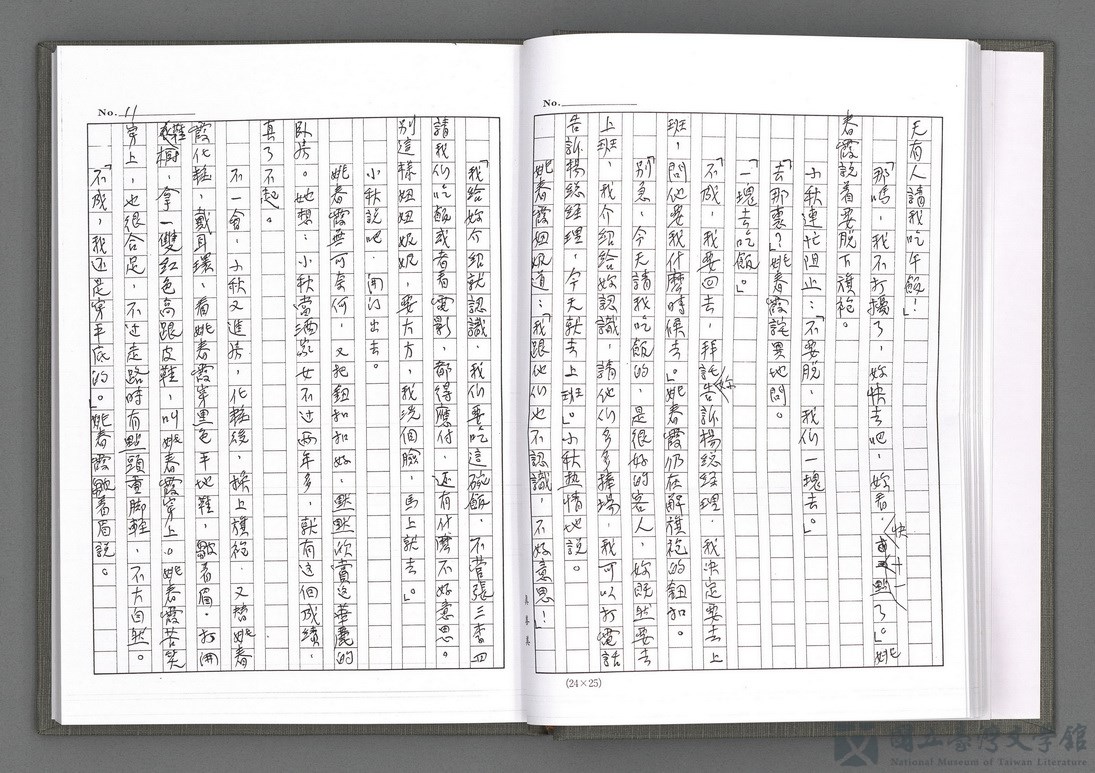 No.
无有人請我吃午飯！」
「那嗎，我不打擾了，妳快去吧，妳看，快十一點了。」姚
春霞說着要脫下旗袍。
小秋連忙阻止：「不要脫，我们一塊去。」
「去那裏？」姚春霞詫異地問。
「一塊去吃飯。」
「不成，我要回去，拜託妳告訴揚総経理，我決定要去上
班，問他要我什麼時候去。」姚春霞仍在解旗袍的鈕扣。
「別急，今天請我吃飯的，是很好的客人，妳既然要去
上班，我介紹給妳認識，請他们多多捧場，我可以打電話
告訴揚総経理，今天就去上班。」小秋热情地說。
姚春霞忸怩道：「我跟他们也不認識，不好意思！
(24×25)
No. 11
「我給妳介紹就認識，我们要吃這碗飯，不管張三李四
請我们吃飯或者看電影，都得應付，还有什麼不好意思。
別這樣妞妞妮妮，要大方，我洗個臉，馬上就去。」
小秋說吧，開门出去。
姚春霞無可奈何，又把鈕扣扣好，默默欣賞這華麗的
臥房。她想：小秋當酒家女不过两年多，就有这個成績，
真了不起。
不一會，小秋又進房，化粧後，換上旗袍，又替姚春
霞化粧，戴耳環，看姚春霞穿黑色平地鞋，皺着眉，打開
鞋橱，拿一雙紅色高跟皮鞋，叫姚春霞穿上。姚春霞苦笑
穿上，也很合足，不过走路時有點頭重脚輕，不大自然。
「不成，我还是穿平底的。」姚春霞皺着眉說。
國立臺灣文学館
National Museum of Taiwan Literature